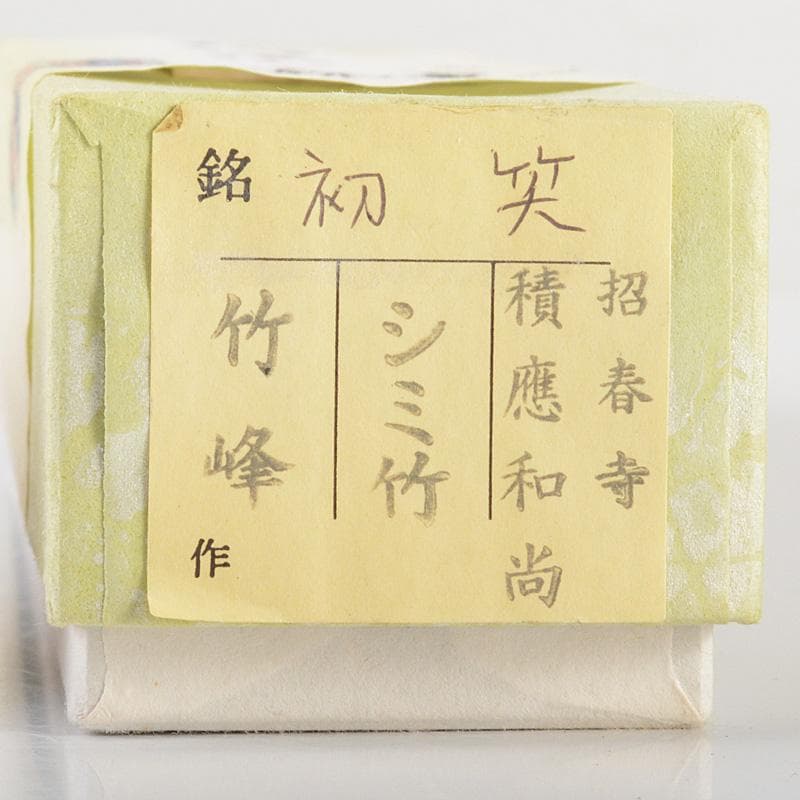 銘 初 笑
招春寺
積應和尚
シミ竹
竹峰
作